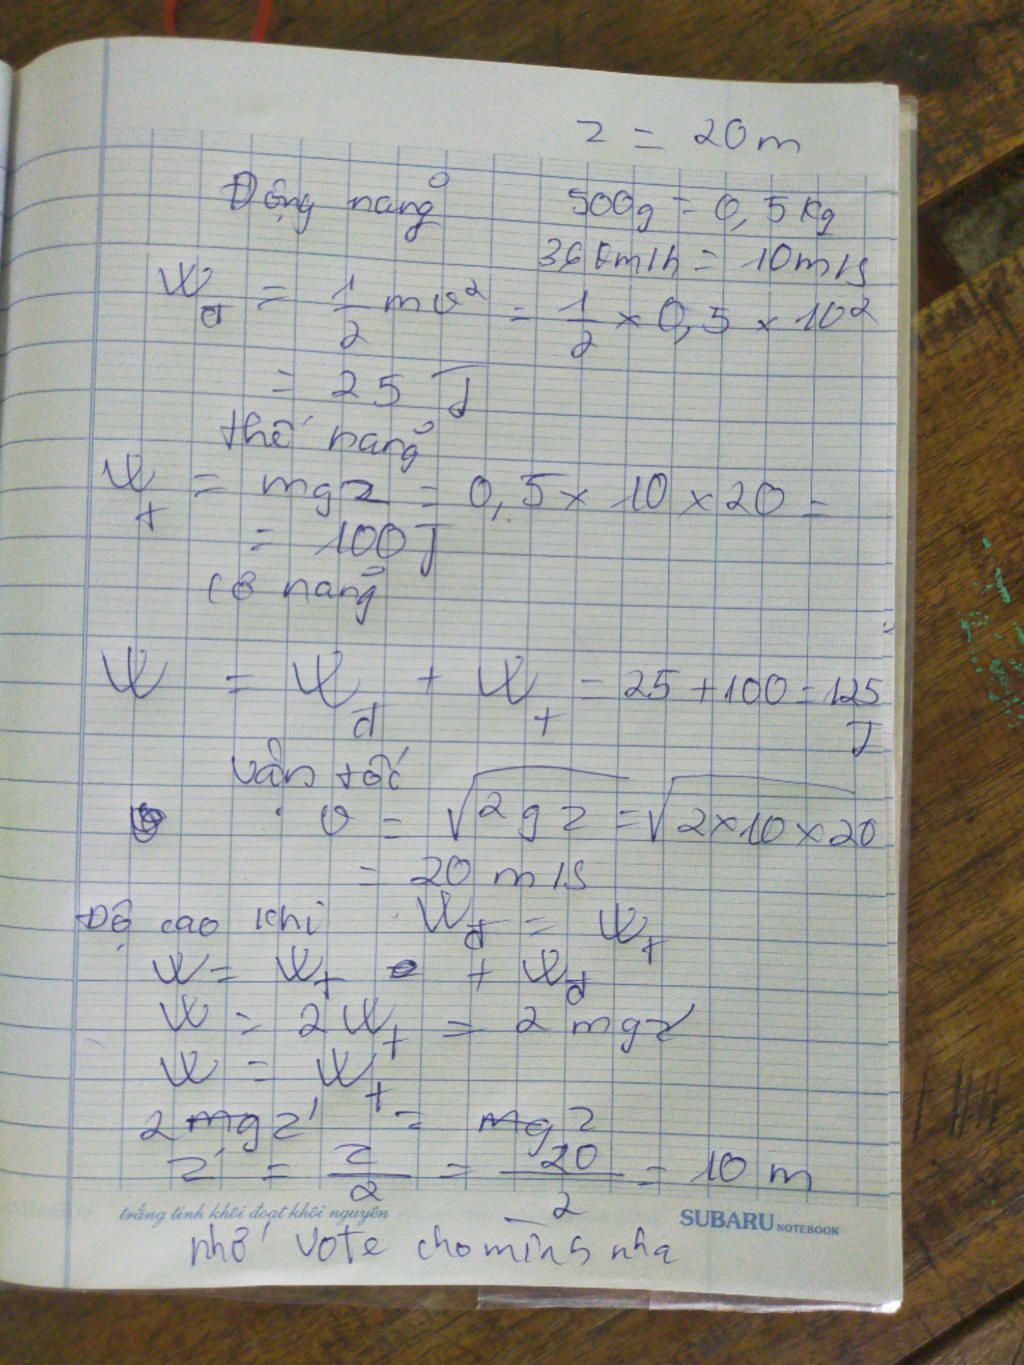 z = 20m
Động năng 500g = 0,5kg
36km/h = 10m/s
Wđ = 1/2 mv² = 1/2 × 0,5 × 10²
= 25 J
thế năng
Wt = mgz = 0,5 × 10 × 20 =
= 100J
cơ năng
W = Wđ + Wt = 25 + 100 = 125
J
vận tốc
v = √2gz = √2×10×20
= 20 m/s
Độ cao khi Wđ = Wt
W = Wt + Wđ
W = 2Wt = 2mgz
W = Wt
2mgz' = mgz
z' = z/2 = 20/2 = 10 m
trắng tinh khôi đoạt khôi nguyên SUBARU NOTEBOOK
nhớ vote cho mình nha